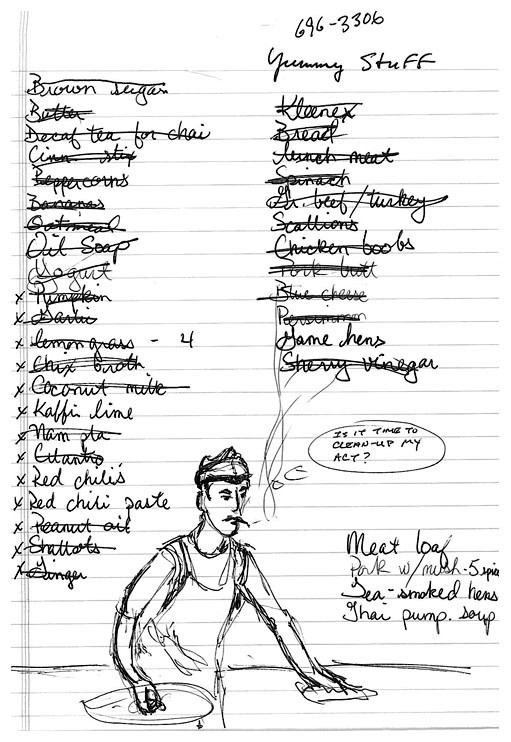 696-3306
Yummy Stuff
Brown sugar
Butter
Decaf tea for chai
Cinn stix
Peppercorns
Bananas
Oatmeal
Oil Soap
Yogurt
x Pumpkin
x Garlic
x lemongrass - 4
x Chix broth
x Coconut milk
x Kaffir lime
x Nam pla
x Cilantro
x Red chili's
x Red chili paste
x Peanut oil
x Shallots
x Ginger
Kleenex
Bread
lunch meat
Spinach
Gr. beef/turkey
Scallions
Chicken boobs
Pork butt
Blue cheese
Persimmon
Game hens
Sherry vinegar
IS IT TIME TO
CLEAN-UP MY
ACT?
Meat loaf
Pork w/mush-5 spice
Tea-smoked hens
Thai pump. soup